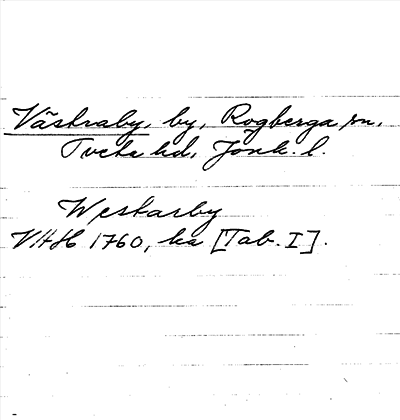 Västraby, by, Rogberga sn,
Tveta hd, Jönk. l.
Westarby
VHH 1760, ka [Tab. I].